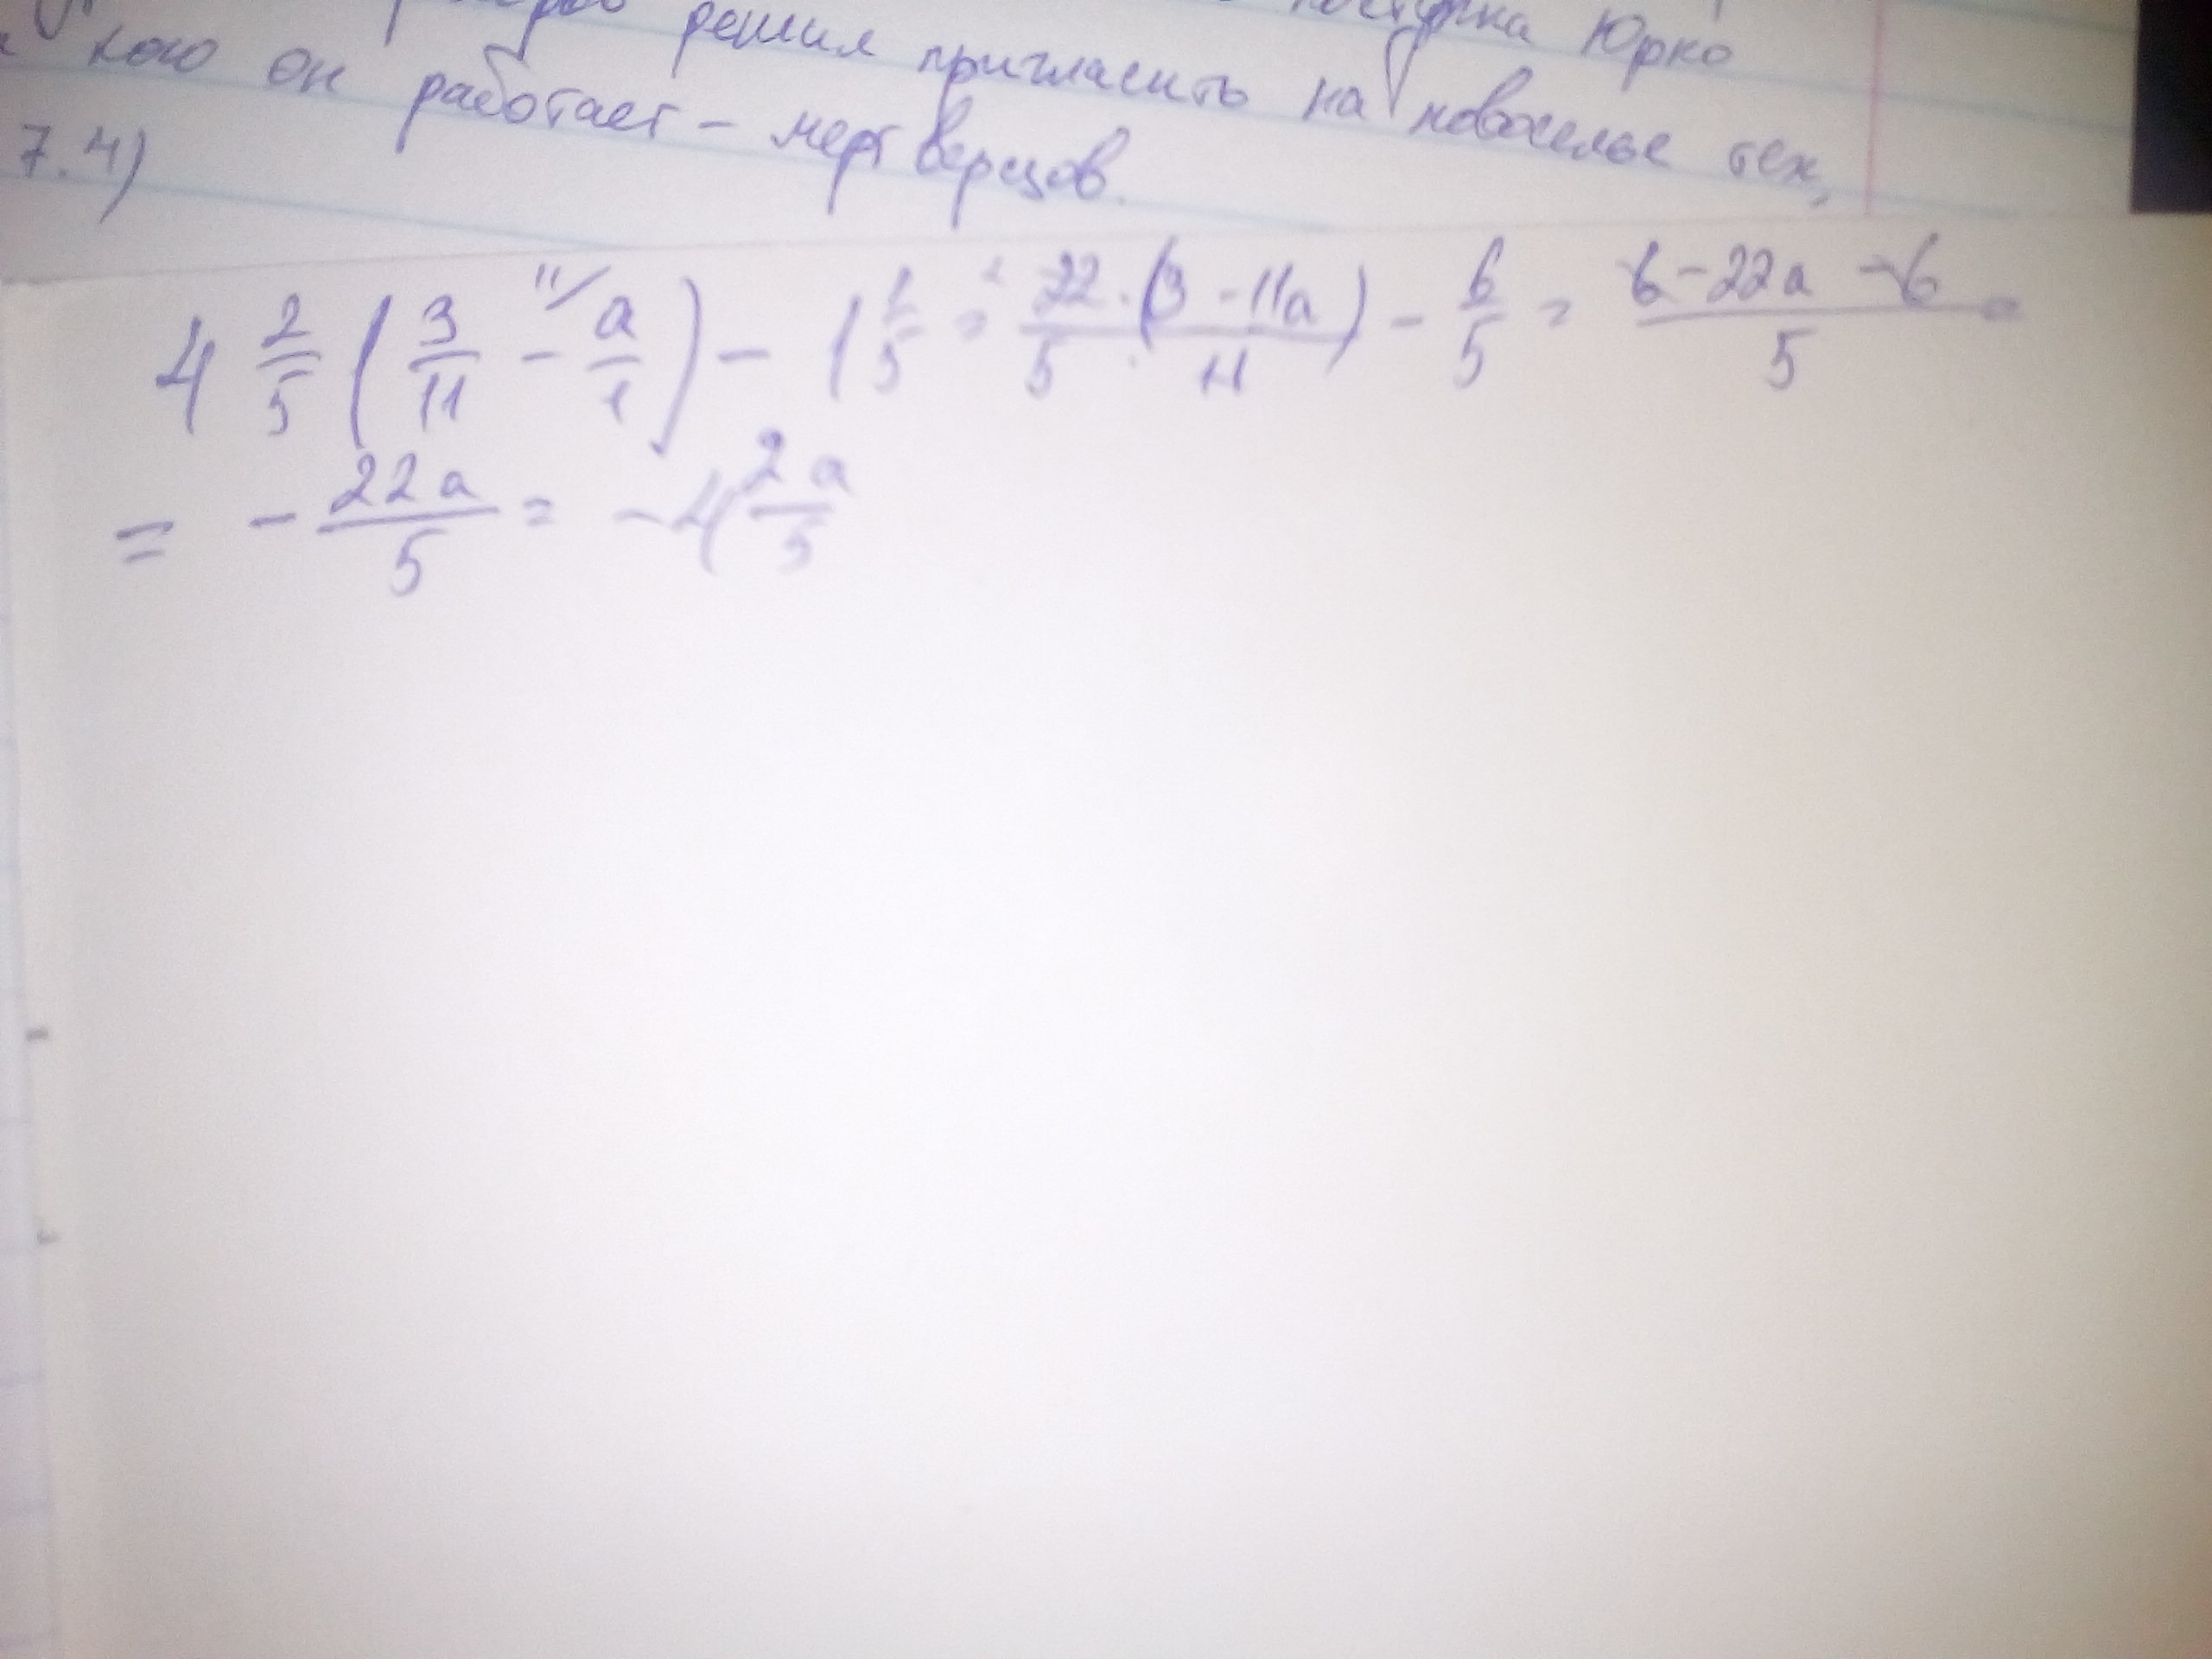 решил пригласить на новоселье тех,
поступка Юрко
кого он работает – мертверцов.
7.4)
4 2/5 (3/11 - a/1) - 1 1/5 = 22·(3-11a)/5·11 - 6/5 = 6-22a-6/5 =
= - 22a/5 = -4 2a/5